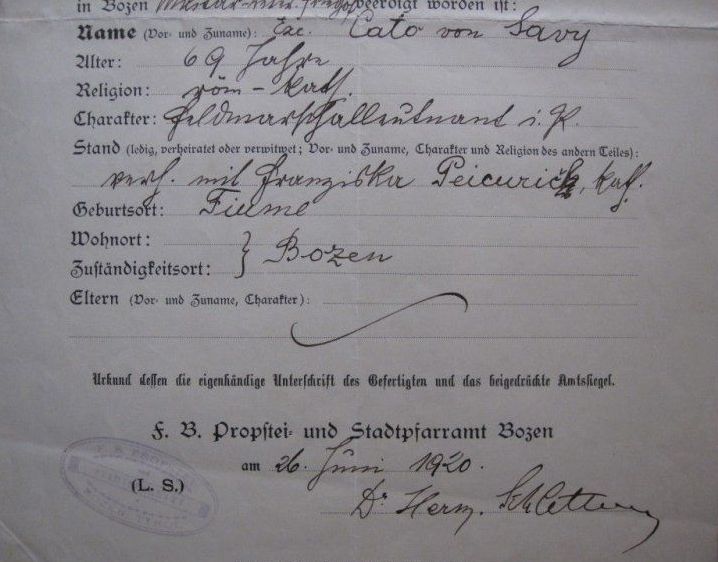 in Bozen beerdigt worden ist:
Name (Vor- und Zuname): Exc. Cato von Savy
Alter: 69 Jahre
Religion: röm-kath.
Charakter: Feldmarschalleutnant i. P.
Stand (ledig, verheiratet oder verwitwet; Vor- und Zuname, Charakter und Religion des andern Teiles):
verh. mit Franziska kath.
Geburtsort: Fiume
Wohnort:
Zuständigkeitsort: } Bozen
Eltern (Vor- und Zuname, Charakter):
Urkund dessen die eigenhändige Unterschrift des Gefertigten und das beigedrückte Amtssiegel.
F. B. Propstei- und Stadtpfarramt Bozen
am 26. Juni 1920.
(L. S.)
Dr Herm.